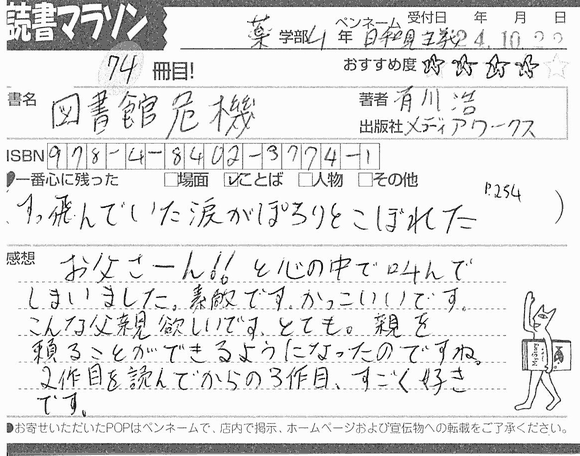 読書マラソン
薬 学部 4 年 ペンネーム 日和見主義 受付日 年 月 日 24.10.22
74 冊目!
おすすめ度 ☆☆☆☆☆
書名 図書館危機
著者 有川 浩
出版社 メディアワークス
ISBN 978-4-8402-3774-1
一番心に残った □場面 ☑ことば □人物 □その他
(すっ飛んでいた涙がぽろりとこぼれた P.254 )
感想 お父さーん!! と心の中で叫んで
しまいました。素敵です。かっこいいです。
こんな父親欲しいです、とても。親を
頼ることができるようになったのですね。
2作目を読んでからの3作目、すごく好き
です。
●お寄せいただいたPOPはペンネームで、店内で掲示、ホームページおよび宣伝物への転載をご了承ください。